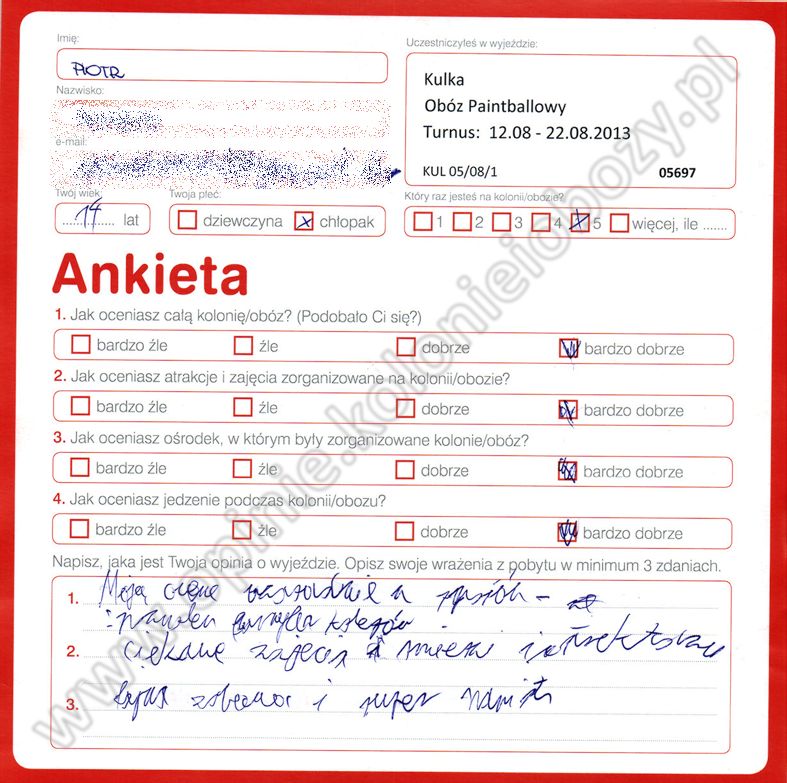 Imię:
PIOTR
Nazwisko:
e-mail:
Uczestniczyłeś w wyjeździe:
Kulka
Obóz Paintballowy
Turnus: 12.08 - 22.08.2013
KUL 05/08/1 05697
Twój wiek:
14 lat
Twoja płeć:
dziewczyna x chłopak
Który raz jesteś na kolonii/obozie?
1 2 3 4 x 5 więcej, ile .......
Ankieta
1. Jak oceniasz całą kolonię/obóz? (Podobało Ci się?)
bardzo źle źle dobrze bardzo dobrze
2. Jak oceniasz atrakcje i zajęcia zorganizowane na kolonii/obozie?
bardzo źle źle dobrze bardzo dobrze
3. Jak oceniasz ośrodek, w którym były zorganizowane kolonie/obóz?
bardzo źle źle dobrze bardzo dobrze
4. Jak oceniasz jedzenie podczas kolonii/obozu?
bardzo źle źle dobrze bardzo dobrze
Napisz, jaka jest Twoja opinia o wyjeździe. Opisz swoje wrażenia z pobytu w minimum 3 zdaniach.
1.
kolegów
2. ciekawe zajęcia
3. i super
www.opinie.kolonieiobozy.pl